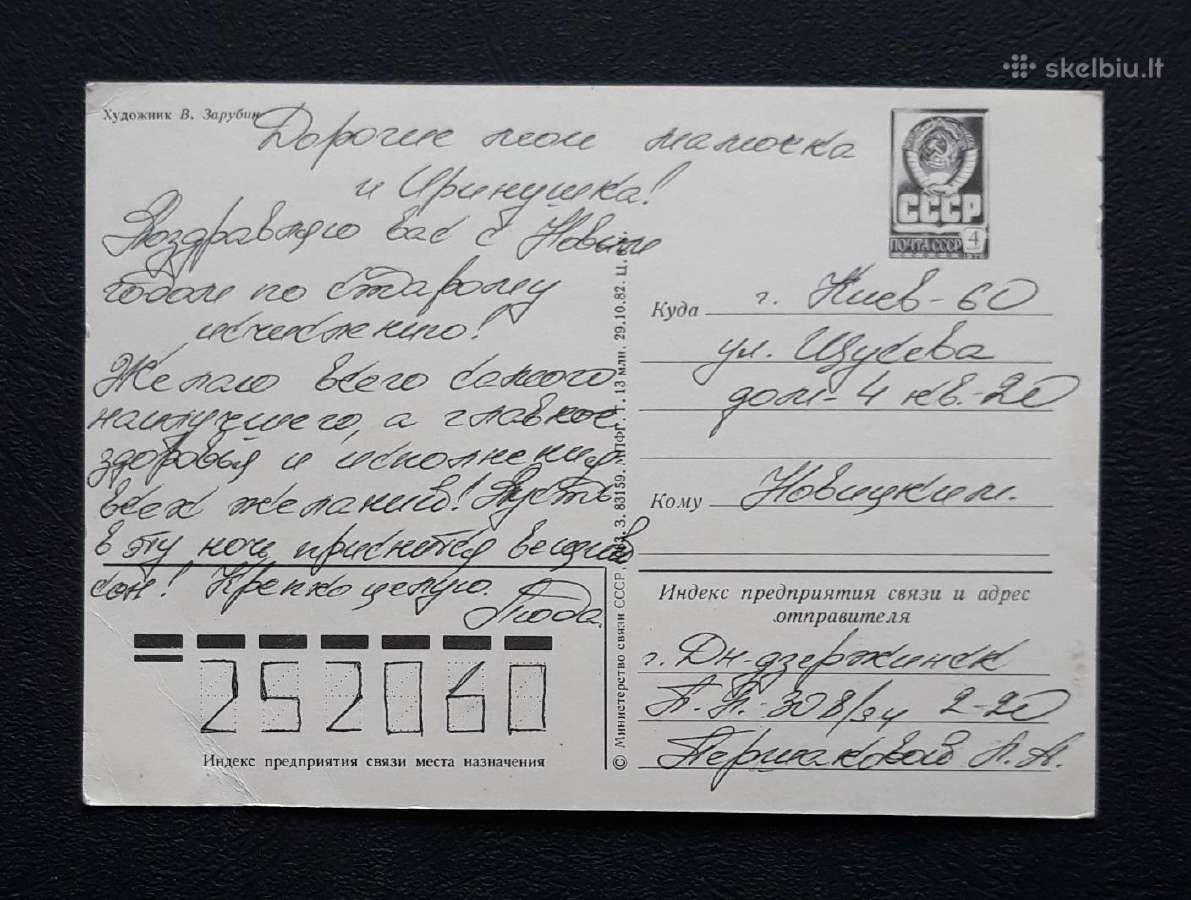 skelbiu.lt
Художник В. Зарубин
Дорогие мои мамочка
и Иринушка!
Поздравляю вас с Новым
годом по старому
исчислению!
Желаю всего самого
наилучшего, а главное
здоровья и исполнения
всех желаний! Пусть
в эту ночь приснится вещий
сон! Крепко целую.
252060
Индекс предприятия связи места назначения
© Министерство связи СССР, З. 83159. МПФГ. Т. 13 млн. 29.10.82. Ц.
СССР
ПОЧТА СССР 4
Куда г. Киев-60
ул. Щусева
дом-4 кв.-20
Кому Новицким.
Индекс предприятия связи и адрес
отправителя
г. Дн-дзержинск
2-20